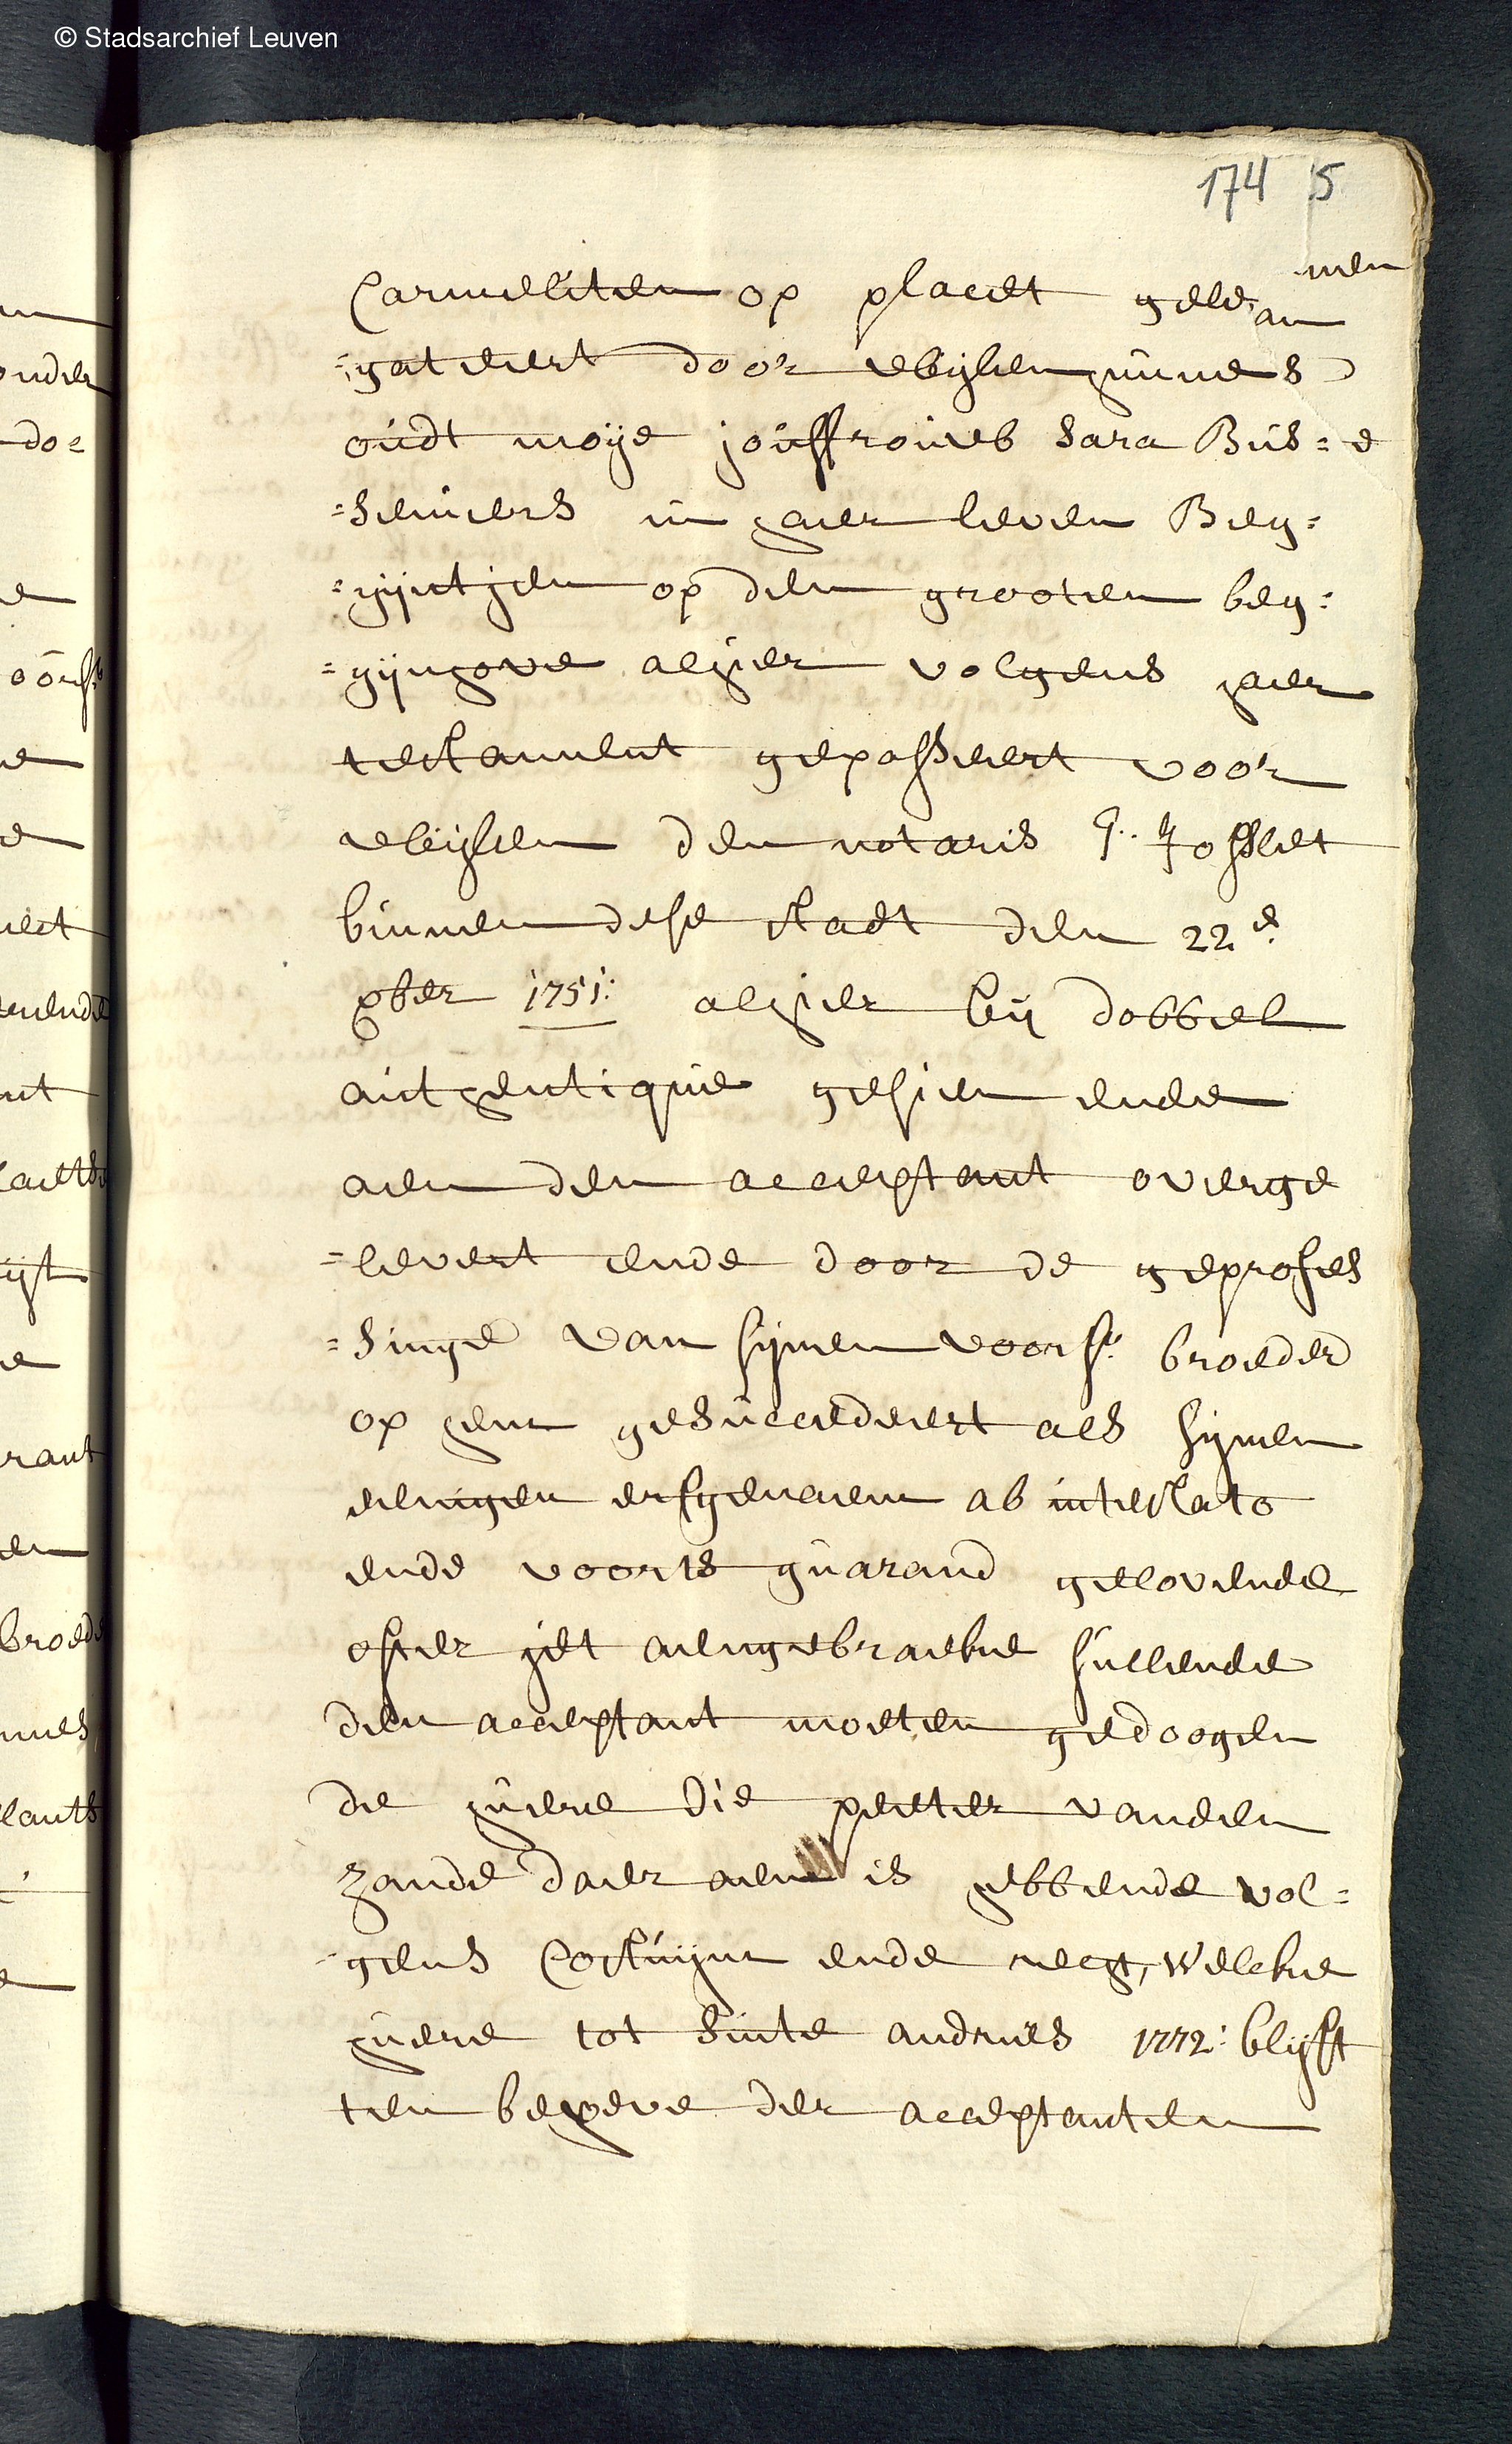 © Stadsarchief Leuven
174 5
Carmeliten op placet gele,
men
an
=gateert door weijlen hunne
oudt moije jouffrouwe Sara Bus=
=seniers in haer leven Beg=
=gijntjen op den grooten beg=
=gijnhove alhier volgens haer
testament gepasseert voor
weijlen den notaris J. Josset
binnen dese stadt den 22e
xber 1751: alhier bij dobbel
authentique gesien ende
aen den acceptant overge
=levert ende door de geprofes
=singe van sijnen voors: broeder
op hem gesuccedeert als sijnen
eenigen erfgenaem ab intestato
ende voorts guarand gelovende
ofter iet aengebraecke sullende
den acceptant moeten gedoogen
de huere die peeter vanden
zande daer aen is hebbende vol=
=gens Costuijm ende recht, welcke
huere tot Sinte andries 1772: blijft
ten behoeve der acceptanten